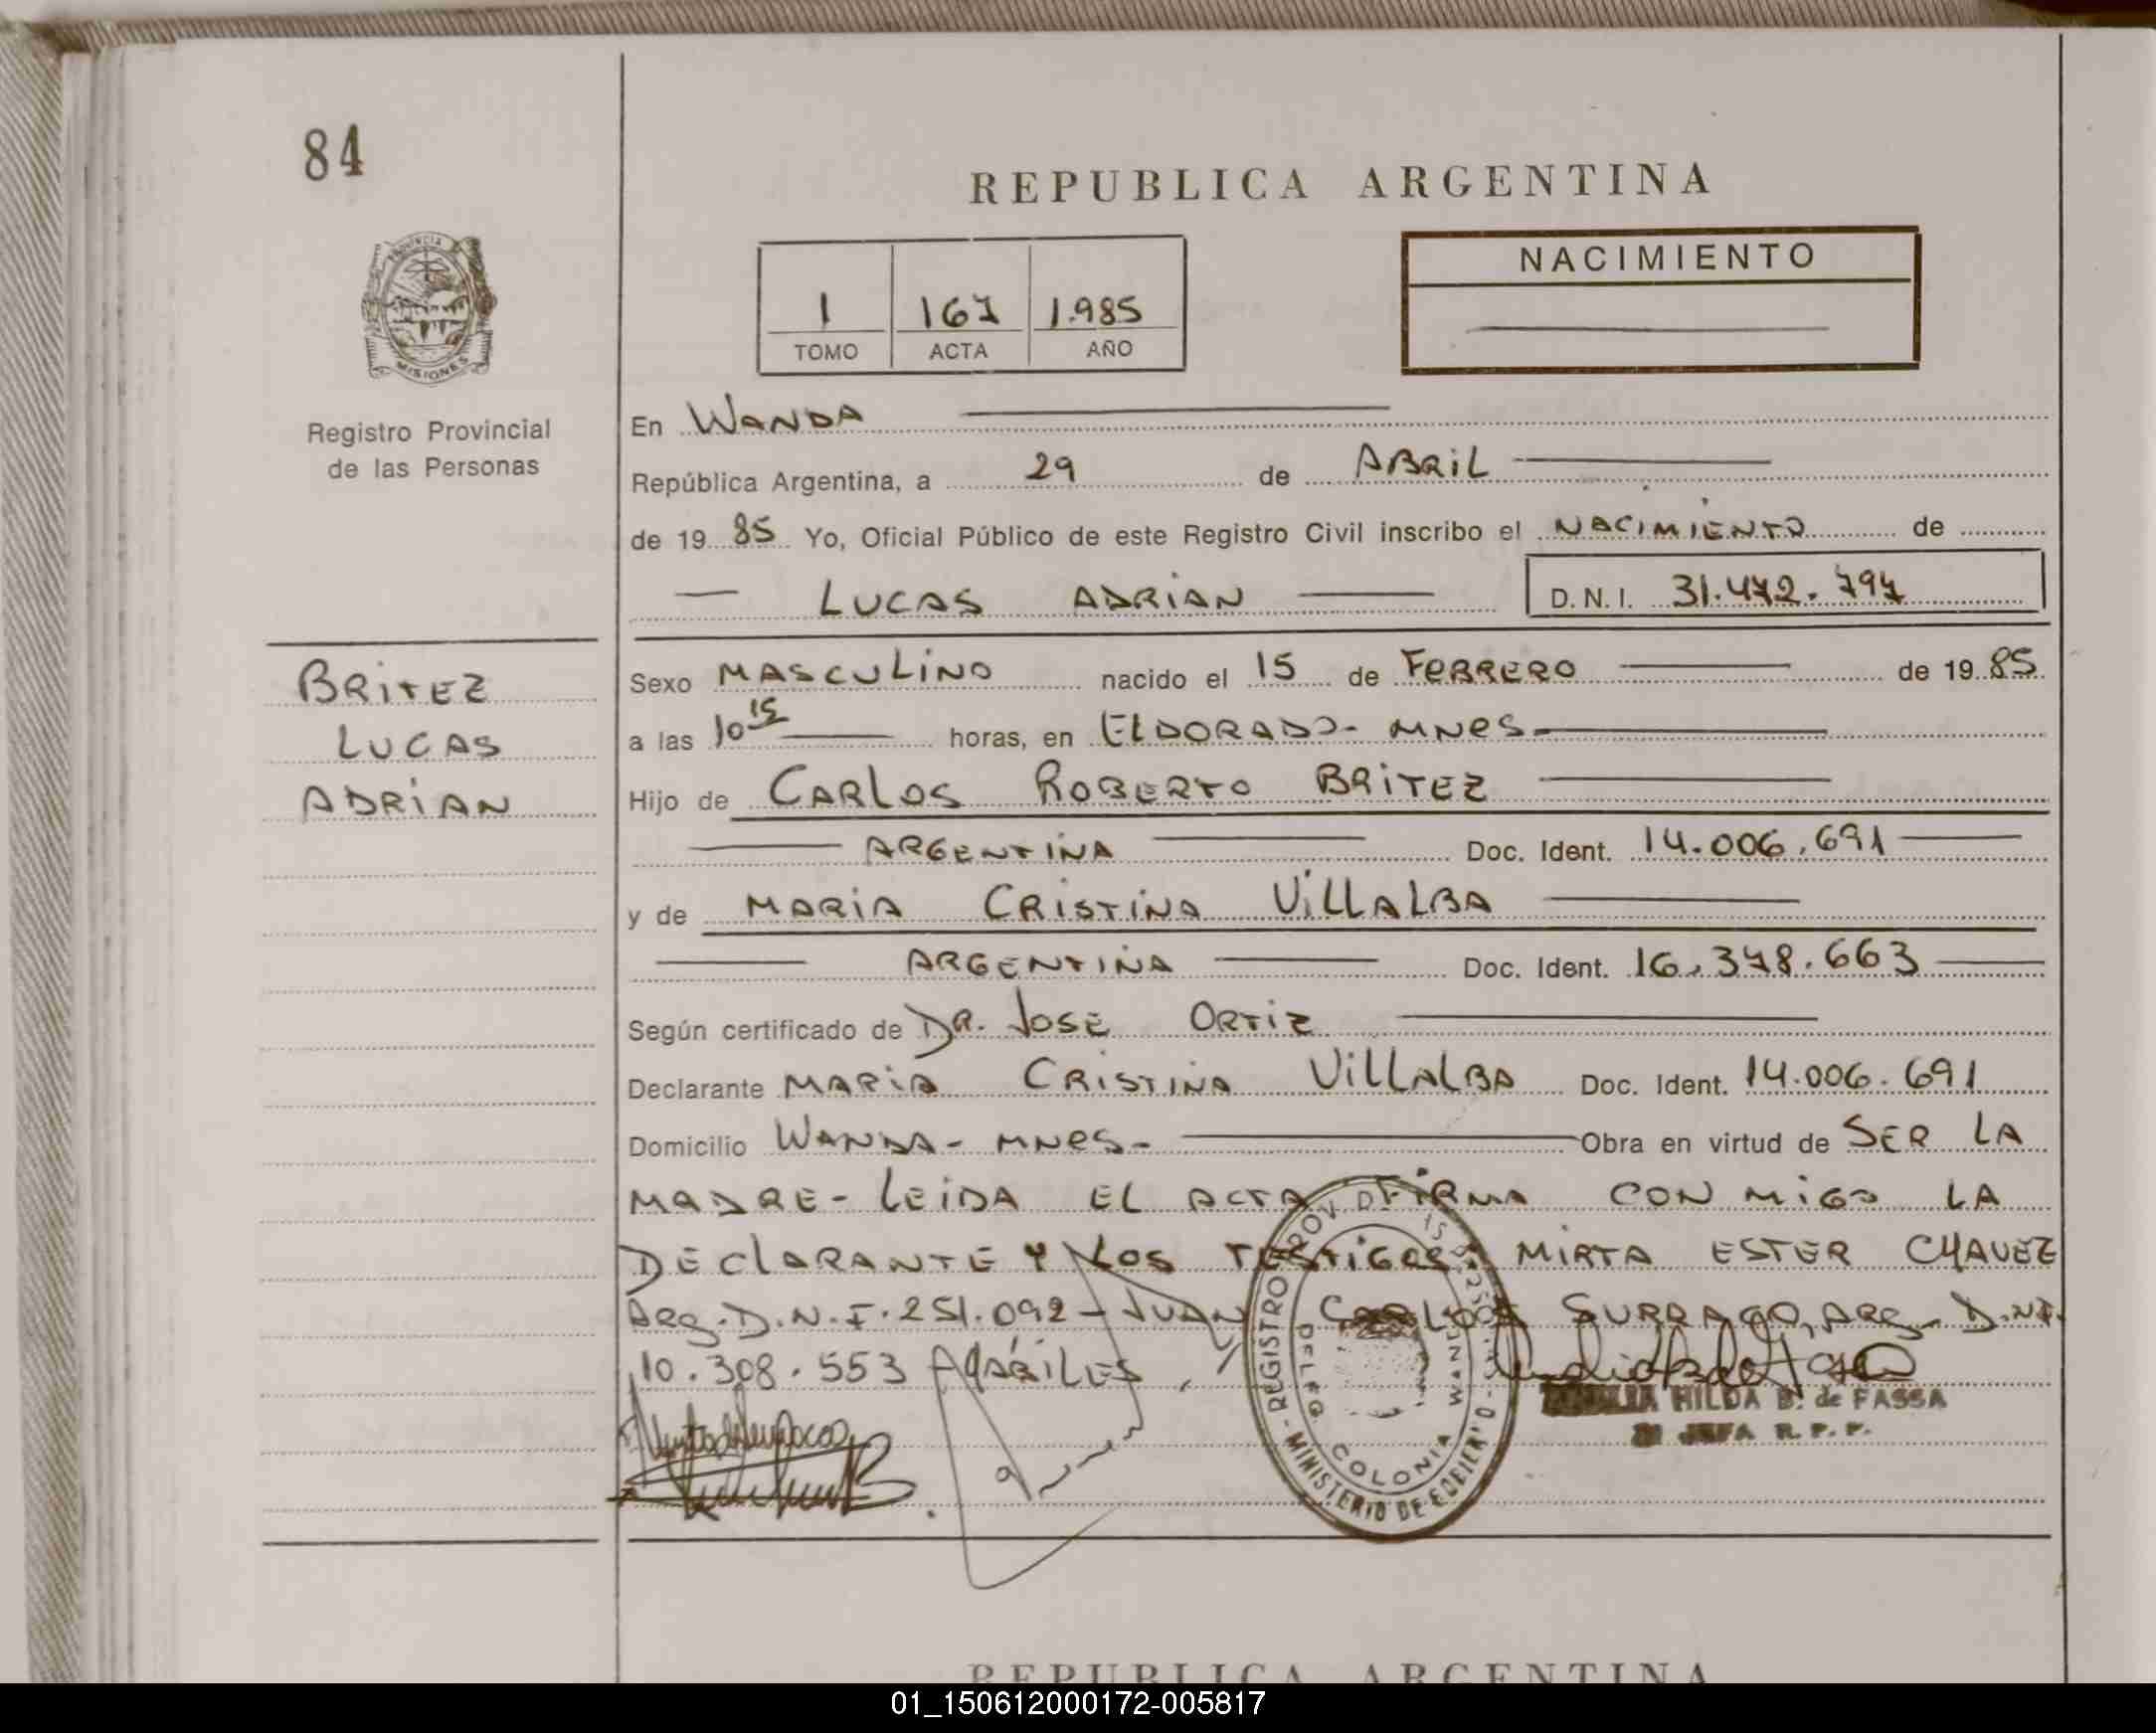 84
REPUBLICA ARGENTINA
NACIMIENTO
1 167 1.985
TOMO ACTA AÑO
PROVINCIA
MISIONES
Registro Provincial
de las Personas
BRITEZ
LUCAS
ADRIAN
En WANDA
República Argentina, a 29 de ABRIL
de 19 85 Yo, Oficial Público de este Registro Civil inscribo el NACIMIENTO de
LUCAS ADRIAN D.N.I. 31.472.797
Sexo MASCULINO nacido el 15 de FEBRERO de 19 85
a las 10 15 horas, en ELDORADO- MNES-
Hijo de CARLOS ROBERTO BRITEZ
ARGENTINA Doc. Ident. 14.006.691
y de MARIA CRISTINA VILLALBA
ARGENTINA Doc. Ident. 16.378.663
Según certificado de DR. JOSE ORTIZ
Declarante MARIA CRISTINA VILLALBA Doc. Ident. 14.006.691
Domicilio WANDA- MNES- Obra en virtud de SER LA
MADRE- LEIDA EL ACTA FIRMA CON MIGO LA
DECLARANTE Y LOS TESTIGOS: MIRTA ESTER CHAVEZ
ARG. D.N.I. 251.092- JUAN CARLOS SURRAGO, ARG- D.NI.
10.308.553 AHÁBILES
HILDA B. de FASSA
JEFA R.P.P.
REGISTRO PROV. D
MINISTERIO DE GOBIERNO
COLONIA WANDA
REPUBLICA ARGENTINA
01_150612000172-005817